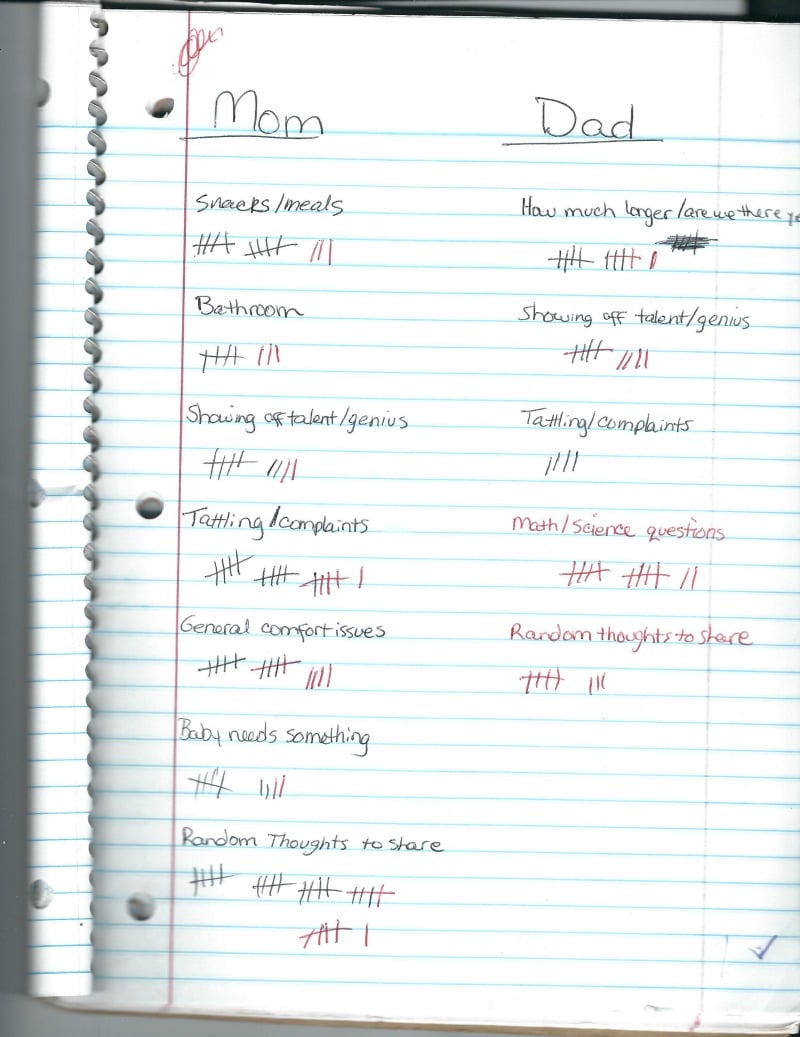 Mom
Snacks/meals
Bathroom
Showing off talent/genius
Tattling/complaints
General comfort issues
Baby needs something
Random Thoughts to share
Dad
How much longer/are we there
Showing off talent/genius
Tattling/complaints
Math/Science questions
Random thoughts to share